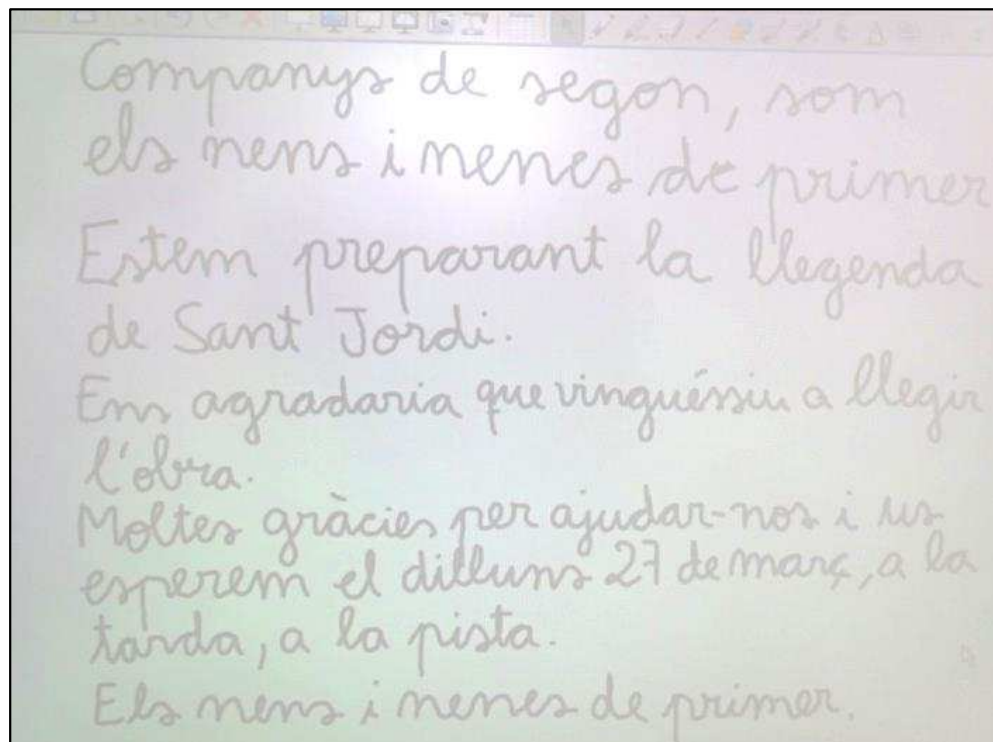 Companys de segon, som
els nens i nenes de primer
Estem preparant la llegenda
de Sant Jordi.
Ens agradaria que vinguéssiu a llegir
l'obra.
Moltes gràcies per ajudar-nos i us
esperem el dilluns 27 de març, a la
tarda, a la pista.
Els nens i nenes de primer.